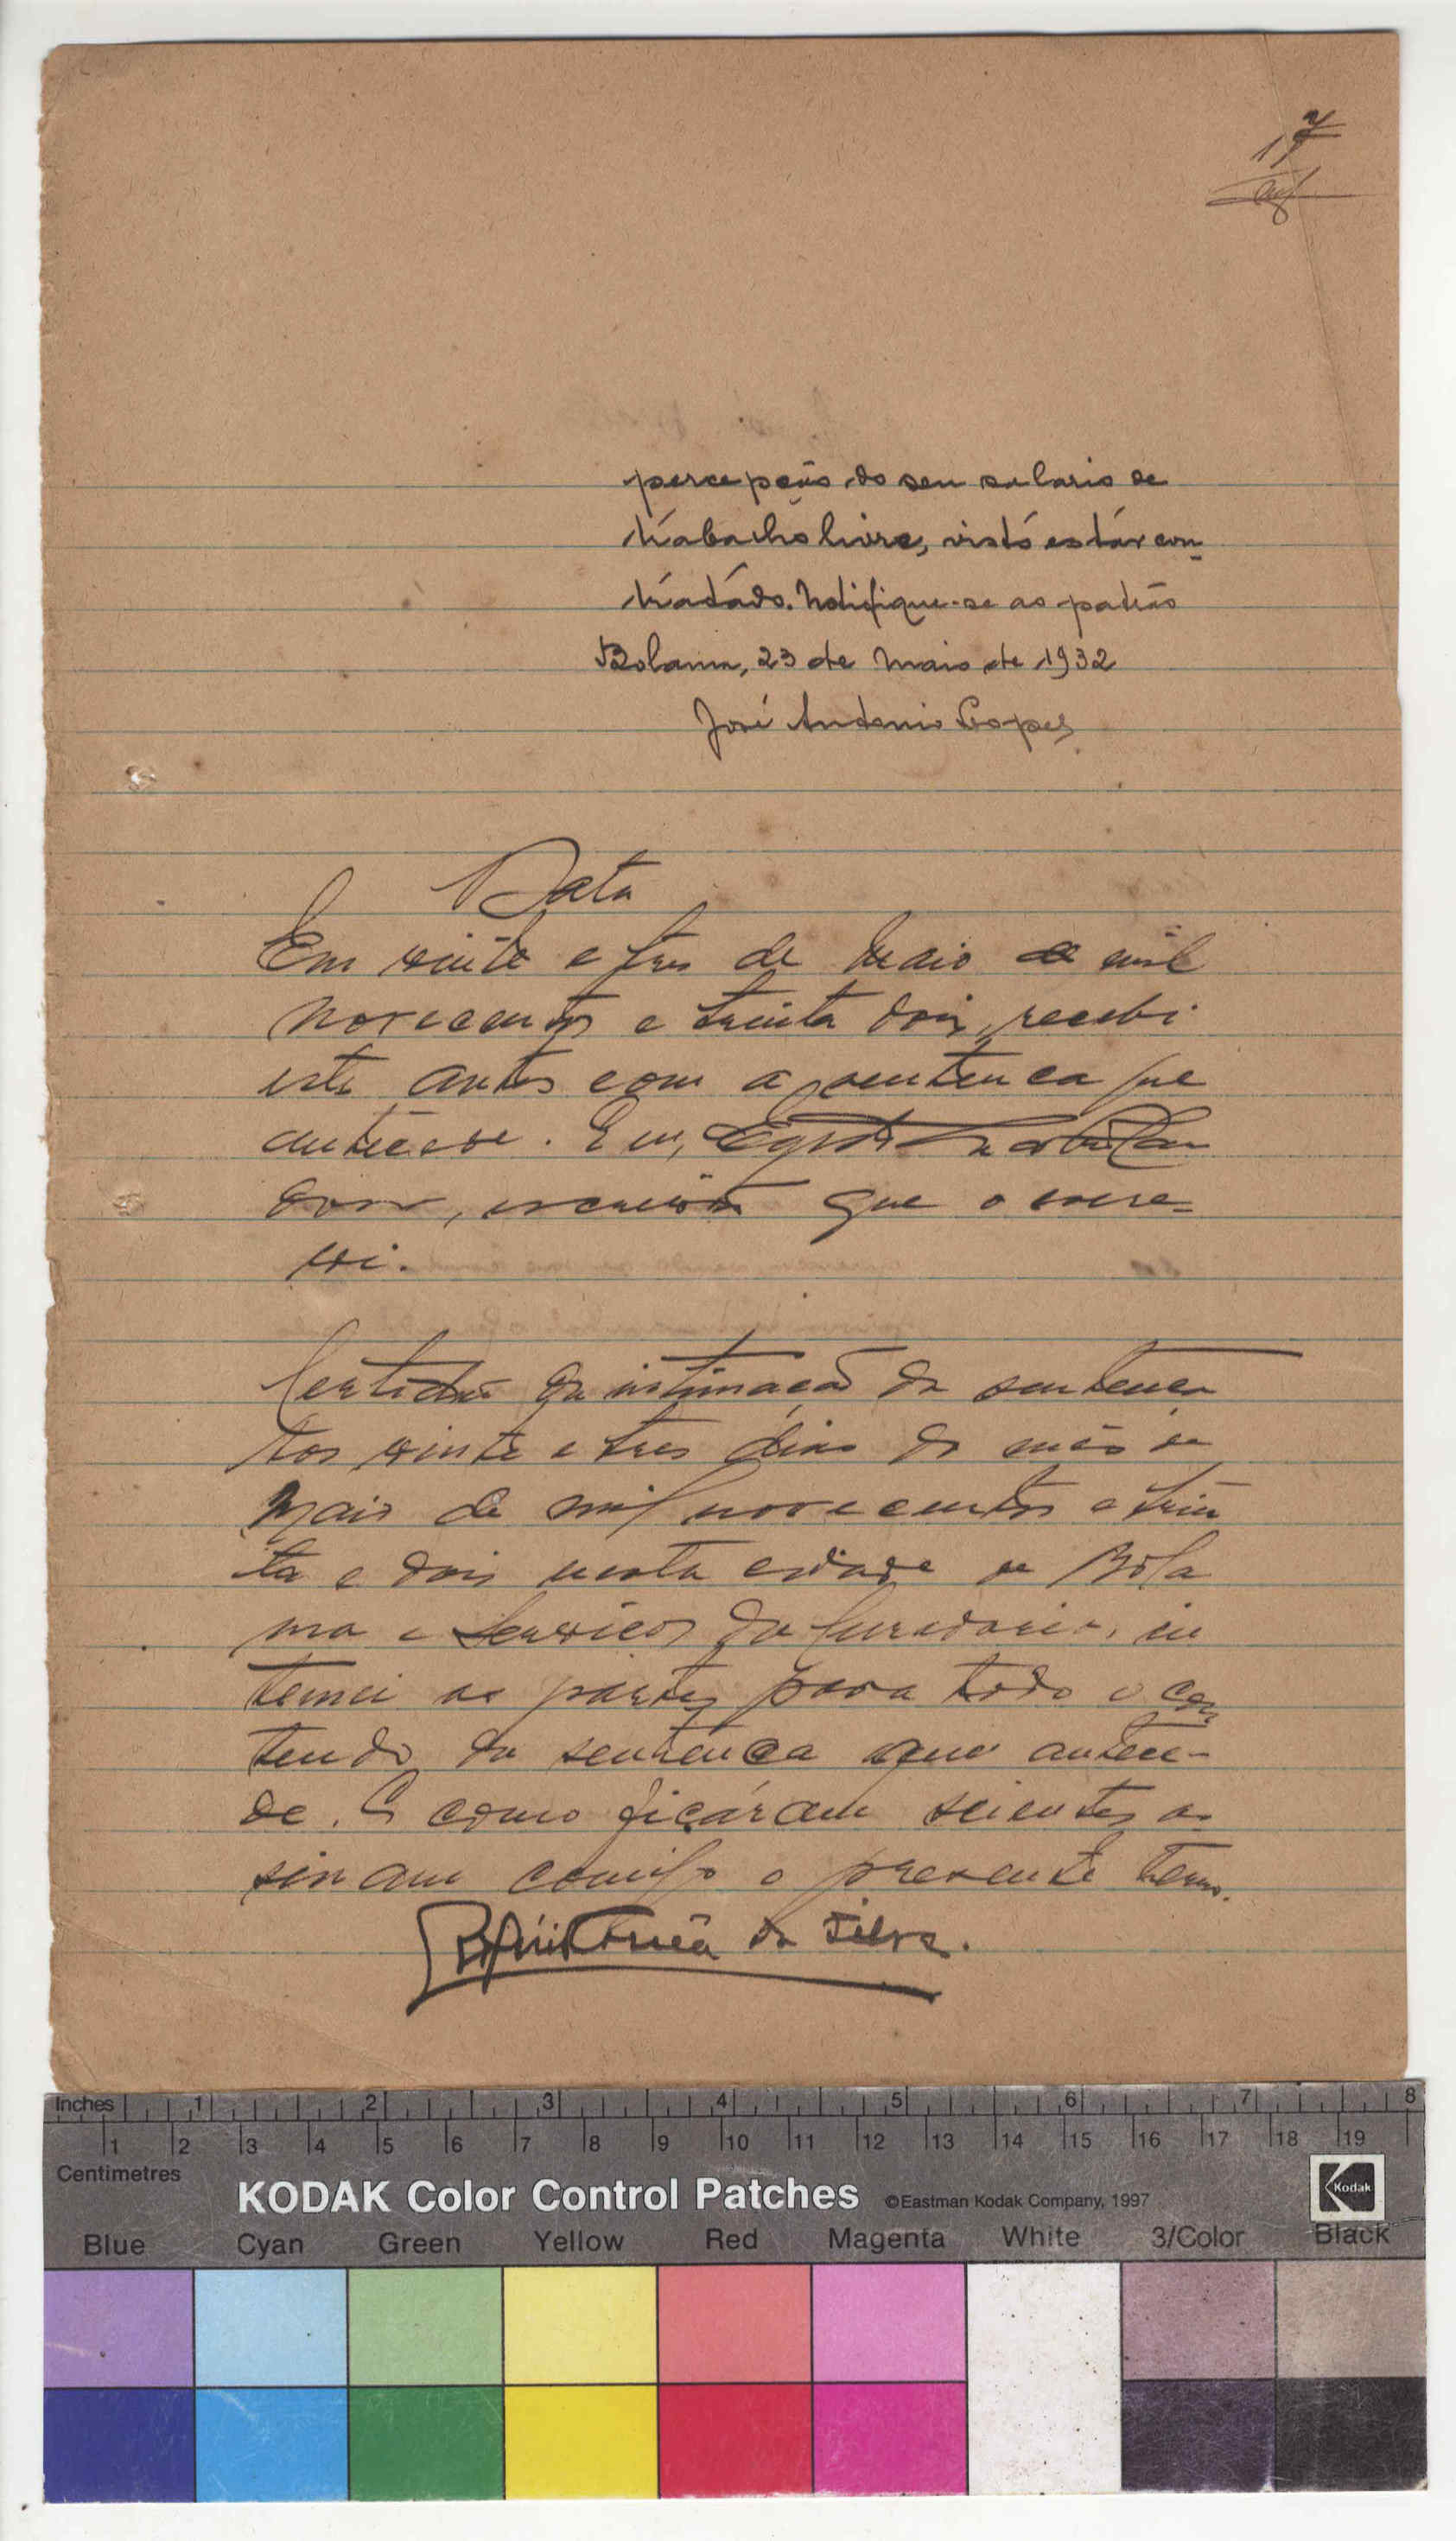 17
percepção do seu salario de
trabalho livre, visto estár con-
tratádo. Notifique-se ao patrão
Bolama, 23 de Maio de 1932
José Antonio Lopes
Data
Em vinte e tres de Maio de mil
novecentos e trinta dois, recebi
este autos com a sentença que
antecede. Eu,
escrivão que o escre-
vi.
Certidão da intimação da sentença
Aos vinte e tres dias do mês de
Maio de mil novecentos e trin
ta e dois nesta cidade de Bola
ma e Serviços da Curadoria, in
temei as partes para todo o con
teudo da sentença que antece-
de. E como ficáram scientes as
sinam comigo o presente termo.
da Silva.
Inches 1 2 3 4 5 6 7 8
1 2 3 4 5 6 7 8 9 10 11 12 13 14 15 16 17 18 19
Centimetres
KODAK Color Control Patches ©Eastman Kodak Company, 1997 Kodak
Blue Cyan Green Yellow Red Magenta White 3/Color Black